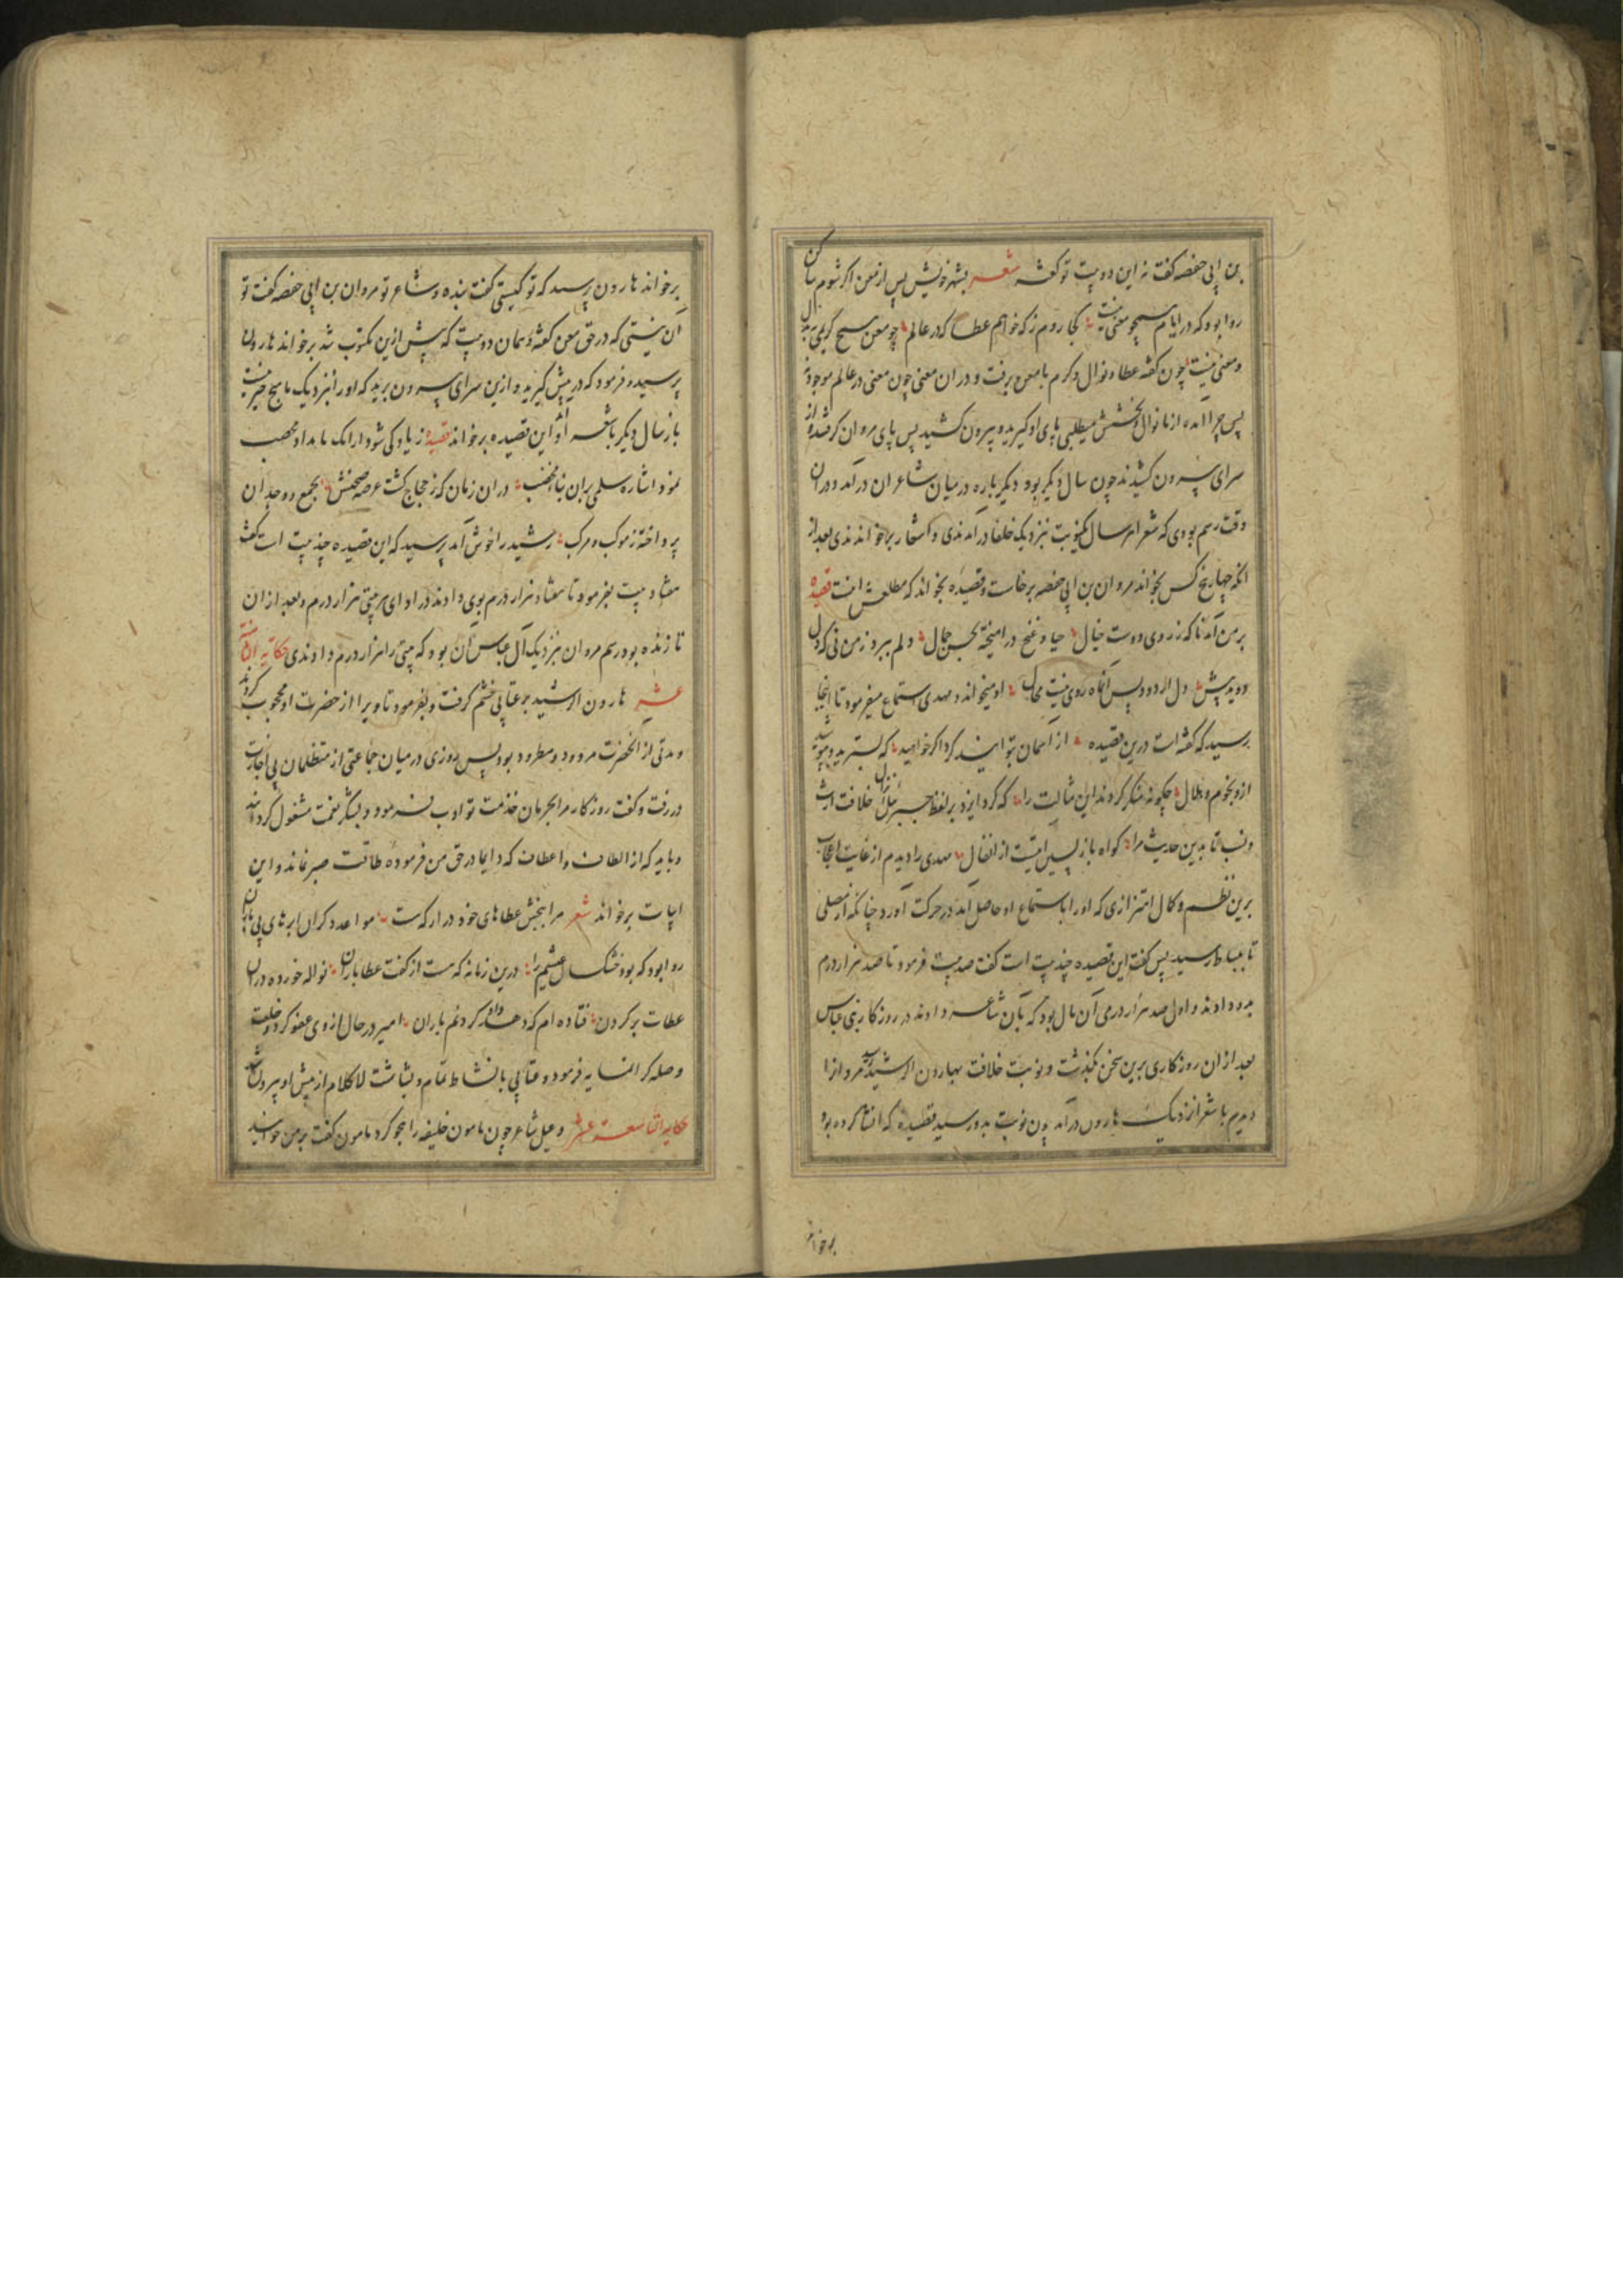 بن ابی حفصه گفت نه این دو بیت تو گفته شعر بشهر خویش پس از معن اگر شوم ساکن
روا بود که در ایام هیچو معنی نیست کجا روم ز که خواهم عطا که در عالم چو معن هیچ کریمی
و معنی نیست چون گفته عطا و نوال و کرم با معن برفت و در ان معنی چون معنی در عالم موجود نه
پس چرا آمده از ما نوال و بخشش میطلبی پای او گیرید و بیرون کشید پس پای مروان گرفته از
سرای بیرون کشیدند چون سال دیگر بود دیگر باره در میان شاعران در آمد و دران
وقت رسم بودی که شعرا هر سال یکنوبت بنزدیک خلفا در آمدندی و اشعار بر خواندندی بعد از
انکه چهار پنج کس بخواند مروان بن ابی حفصه بر خاست و قصیده بخواند که مطلعش اینست قصیده
بر من آمد ناگه ز روی دوست خیال حیا و غنج در امیخته بحسن جمال دلم ببرد ز من نی که دل
دوید پیش دل از دو دیس آنگاه روی نیست محال او میخواند و مهدی استماع میفرمود تا اینجا
رسید که گفته است درین قصیده از آسمان بتوانید کرد اگر خواهید که بسترید و بپوشید
ازو نجوم و هلال چگونه منکر کردند این مثالت را که کرد ایزد بر لفظ جبرئیل خلافت ارث
و نسب تا بدین حدیث مرا گواه باز پسین ایتست از انفال مهدی را دیدم از غایت اعجاب
برین نظم و کمال اهتزازی که او را باستماع او حاصل آمد در حرکت آورد چنانکه از مصلی
تا ببساط رسید پس گفت این قصیده چند بیت است گفت صد بیت فرمود تا صد هزار درم
بدو دادند و اول صد هزار درمی آن مال بود که بآن شاعر دادند در روزگار بنی عباس
بعد از ان روزگاری برین سخن بگذشت و نوبت خلافت بهارون الرشید رسید مروان را
دیدم با شعرا نزدیک هارون در آمد چون نوبت بدو رسید قصیده که انشا کرده بود
برخواند
برخواند هارون پرسید که تو کیستی گفت بنده و شاعر تو مروان بن ابی حفصه گفت تو
آن نیستی که در حق معن گفته و همان دو بیت که پیش ازین مکتوب شد بر خواند هارون
پرسید و فرمود که در پیش گیرید و ازین سرای بیرون برید که او را نزدیک ما هیچ چیز نیست
باز سال دیگر با شعرا این قصیده بر خواند قصیده
نمود اشاره سلمی بران بنا مخضب در ان زمان که ز حجاج گشت عرصه صحنش بجمع
پرداخته ز موکب و مرکب رشید را خوش آمد پرسید که این قصیده چند بیت است گفت
هفتاد بیت بفرمود تا هفتاد هزار درم بوی دادند در ادای هر بیتی هزار درم و بعد از ان
تا زنده بود رسم مروان بنزدیک آل عباس آن بود که بیتی را هزار درم دادندی حکایه الثامنه
عشر هارون الرشید بر عتابی خشم گرفت و بفرمود تا ویرا از حضرت او محجوب کردند
و مدتی از آنحضرت مردود و مطرود بود پس روزی در میان جماعتی از متظلمان بی اجازت
در رفت و گفت روزگار مرا بحرمان خدمت تو ادب فرمود و بشکر نعمت مشغول گردانید
و بآنکه از الطاف و اعطاف که دایما در حق من فرموده طاقت صبر نماند و این
ابیات بر خواند شعر مرا بخش عطاهای خود در ار که هست مواعد دگران ابرهای بی باران
روا بود که بود خشک سال عیشم را درین زمانه که هست از کفت عطا باران نواله خورده دران
عطات بر کردن فتاده ام که دهد کردنم باران امیر در حال از وی عفو کرد و خلعت
و صله گرانمایه فرمود و عتابی با نشاط تمام و بشاشت لاکلام از پیش او بیرون شد
حکایه التاسعة عشر دعبل شاعر چون مامون خلیفه را هجو کرد مامون گفت بر من خوانید